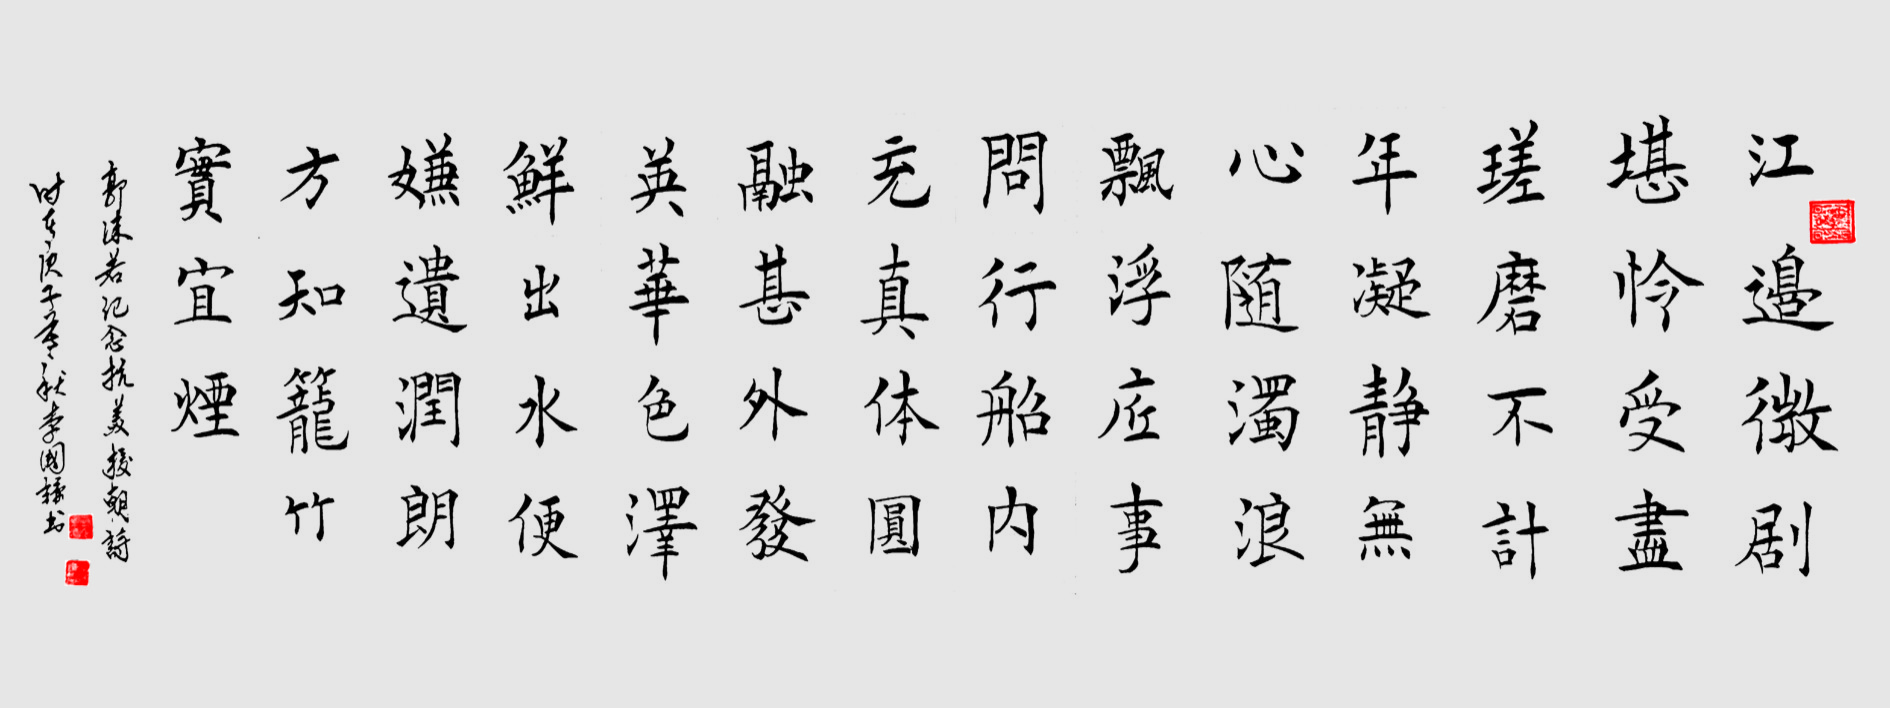 江邊微剧
堪怜受盡
瑳磨不計
年凝静無
心随濁浪
飄浮应事
問行船内
充真体圓
融甚外發
英華色澤
鮮出水便
嫌遺潤朗
方知籠竹
實宜煙
郭沫若纪念抗美援朝詩
时在庚子年秋李國禄书